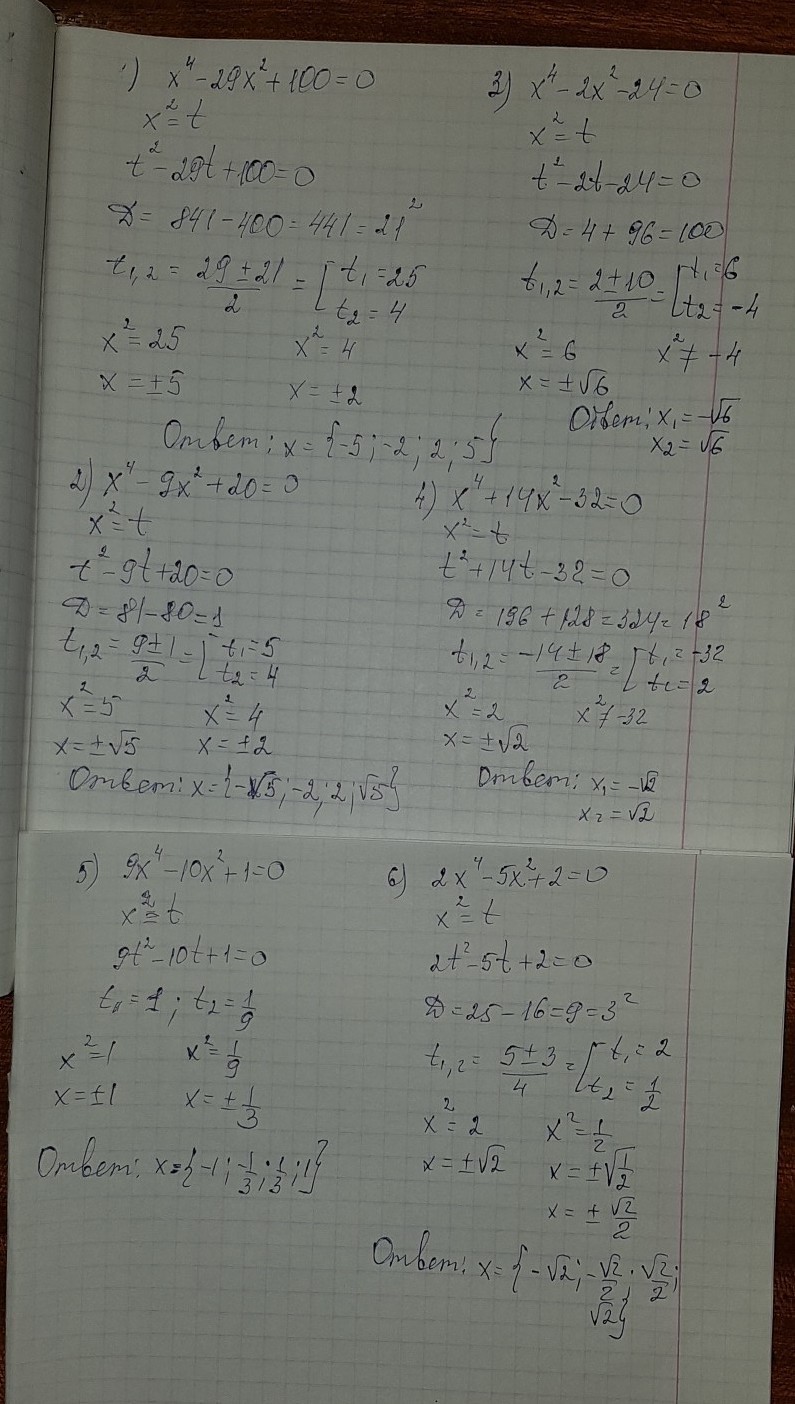 1) x⁴ - 29x² + 100 = 0
x² = t
t² - 29t + 100 = 0
D = 841 - 400 = 441 = 21²
t₁,₂ = (29 ± 21)/2 = [ t₁ = 25
t₂ = 4
x² = 25 x² = 4
x = ±5 x = ±2
Ответ: x = {-5; -2; 2; 5}
2) x⁴ - 9x² + 20 = 0
x² = t
t² - 9t + 20 = 0
D = 81 - 80 = 1
t₁,₂ = (9 ± 1)/2 = [ t₁ = 5
t₂ = 4
x² = 5 x² = 4
x = ±√5 x = ±2
Ответ: x = {-√5; -2; 2; √5}
3) x⁴ - 2x² - 24 = 0
x² = t
t² - 2t - 24 = 0
D = 4 + 96 = 100
t₁,₂ = (2 ± 10)/2 = [ t₁ = 6
t₂ = -4
x² = 6 x² ≠ -4
x = ±√6
Ответ: x₁ = -√6
x₂ = √6
4) x⁴ + 14x² - 32 = 0
x² = t
t² + 14t - 32 = 0
D = 196 + 128 = 324 = 18²
t₁,₂ = (-14 ± 18)/2 = [ t₁ = -32
t₂ = 2
x² = 2 x² ≠ -32
x = ±√2
Ответ: x₁ = -√2
x₂ = √2
5) 9x⁴ - 10x² + 1 = 0
x² = t
9t² - 10t + 1 = 0
t₁ = 1; t₂ = 1/9
x² = 1 x² = 1/9
x = ±1 x = ± 1/3
Ответ: x = {-1; -1/3; 1/3; 1}
6) 2x⁴ - 5x² + 2 = 0
x² = t
2t² - 5t + 2 = 0
D = 25 - 16 = 9 = 3²
t₁,₂ = (5 ± 3)/4 = [ t₁ = 2
t₂ = 1/2
x² = 2 x² = 1/2
x = ±√2 x = ±√(1/2)
x = ± √2/2
Ответ: x = {-√2; -√2/2; √2/2;
√2}